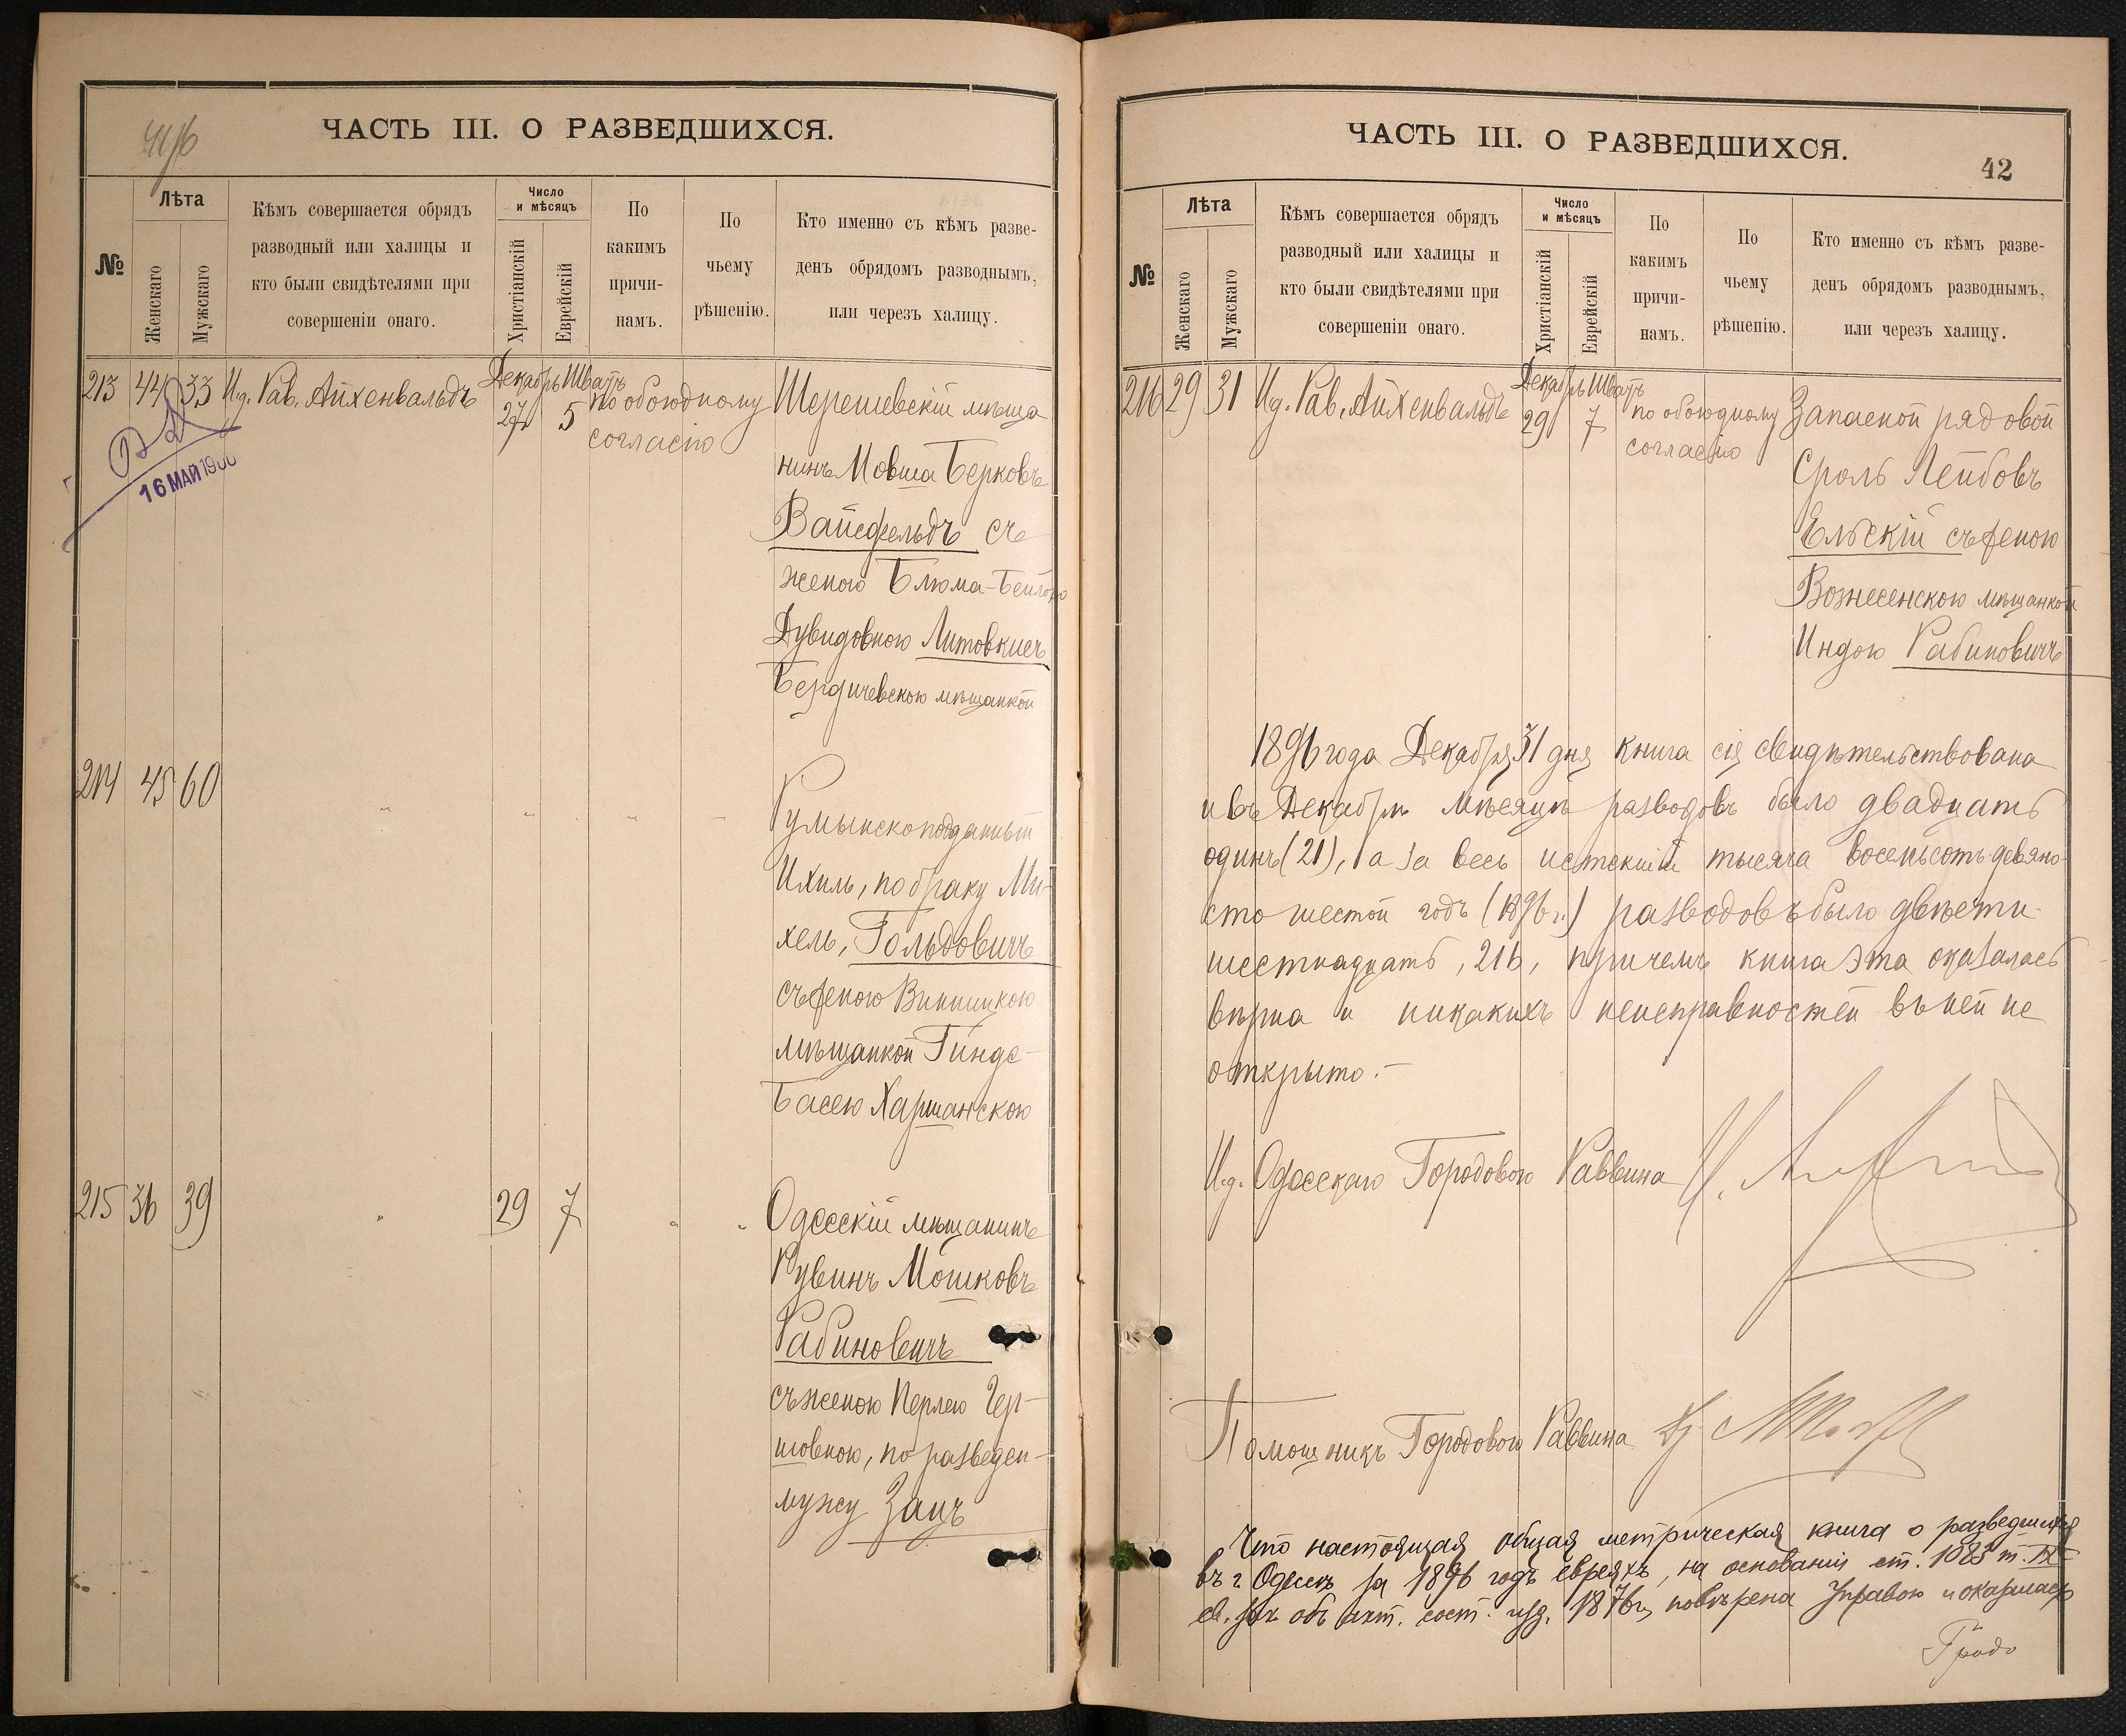 ЧАСТЬ III. О РАЗВЕДШИХСЯ.
№
Лѣта
Женскаго
Мужскаго
Кѣмъ совершается обрядъ
разводный или халицы и
кто были свидѣтелями при
совершеніи онаго.
Число
и мѣсяцъ
Христіанскій
Еврейскій
По
какимъ
причи-
намъ.
По
чьему
рѣшенію.
Кто именно съ кѣмъ разве-
денъ обрядомъ разводнымъ,
или черезъ халицу.
213 44 33 И.д. Рав. Айхенвальдъ Декабрь 27 Шватъ 5 по обоюдному
согласію
Шерешевскій мѣща
нинъ Мовша Берковъ
Вайсфельдъ съ
женою Блюма-Бейлою
Дувидовною
Бердичевскою мѣщанкой
16 МАЙ
214 45 60 " " " " "
Румынскоподданный
Ихиль, по браку Ми-
хель, Гольдовичъ
съ женою Винницкою
мѣщанкой
Басею Харшанскою
215 36 39 " 29 7 " "
Одесскій мѣщанинъ
Рувинъ Мошковъ
Рабиновичъ
съ женою Перлею Гер-
шовною, по разведен-
мужу Зацъ
ЧАСТЬ III. О РАЗВЕДШИХСЯ.
42
№
Лѣта
Женскаго
Мужскаго
Кѣмъ совершается обрядъ
разводный или халицы и
кто были свидѣтелями при
совершеніи онаго.
Число
и мѣсяцъ
Христіанскій
Еврейскій
По
какимъ
причи-
намъ.
По
чьему
рѣшенію.
Кто именно съ кѣмъ разве-
денъ обрядомъ разводнымъ,
или черезъ халицу.
216 29 31 И.д. Рав. Айхенвальдъ Декабрь 29 Шватъ 7 по обоюдному
согласію
Запасной рядовой
Сроль Лейбовъ
Ельскій съ женою
Вознесенскою мѣщанкой
Индою Рабиновичъ
1896 года Декабря 31 дня книга сія свидѣтельствована
и въ Декабрѣ мѣсяцѣ разводовъ было двадцать
одинъ (21), а за весь истекшій тысяча восемьсотъ девяно-
сто шестой годъ (1896 г.) разводовъ было двѣсти
шестнадцать, 216, причемъ книга эта оказалась
вѣрна и никакихъ неисправностей въ ней не
открыто.-
И.д. Одесскаго Городового Раввина
Помощникъ Городового Раввина
Что настоящая общая метрическая книга о разведшихся
въ г. Одессѣ за 1896 годъ евреяхъ, на основаніи ст. 1083 т. IX
св. зак. объ акт. сост. изд. 1876 г, повѣрена Управою и оказалась